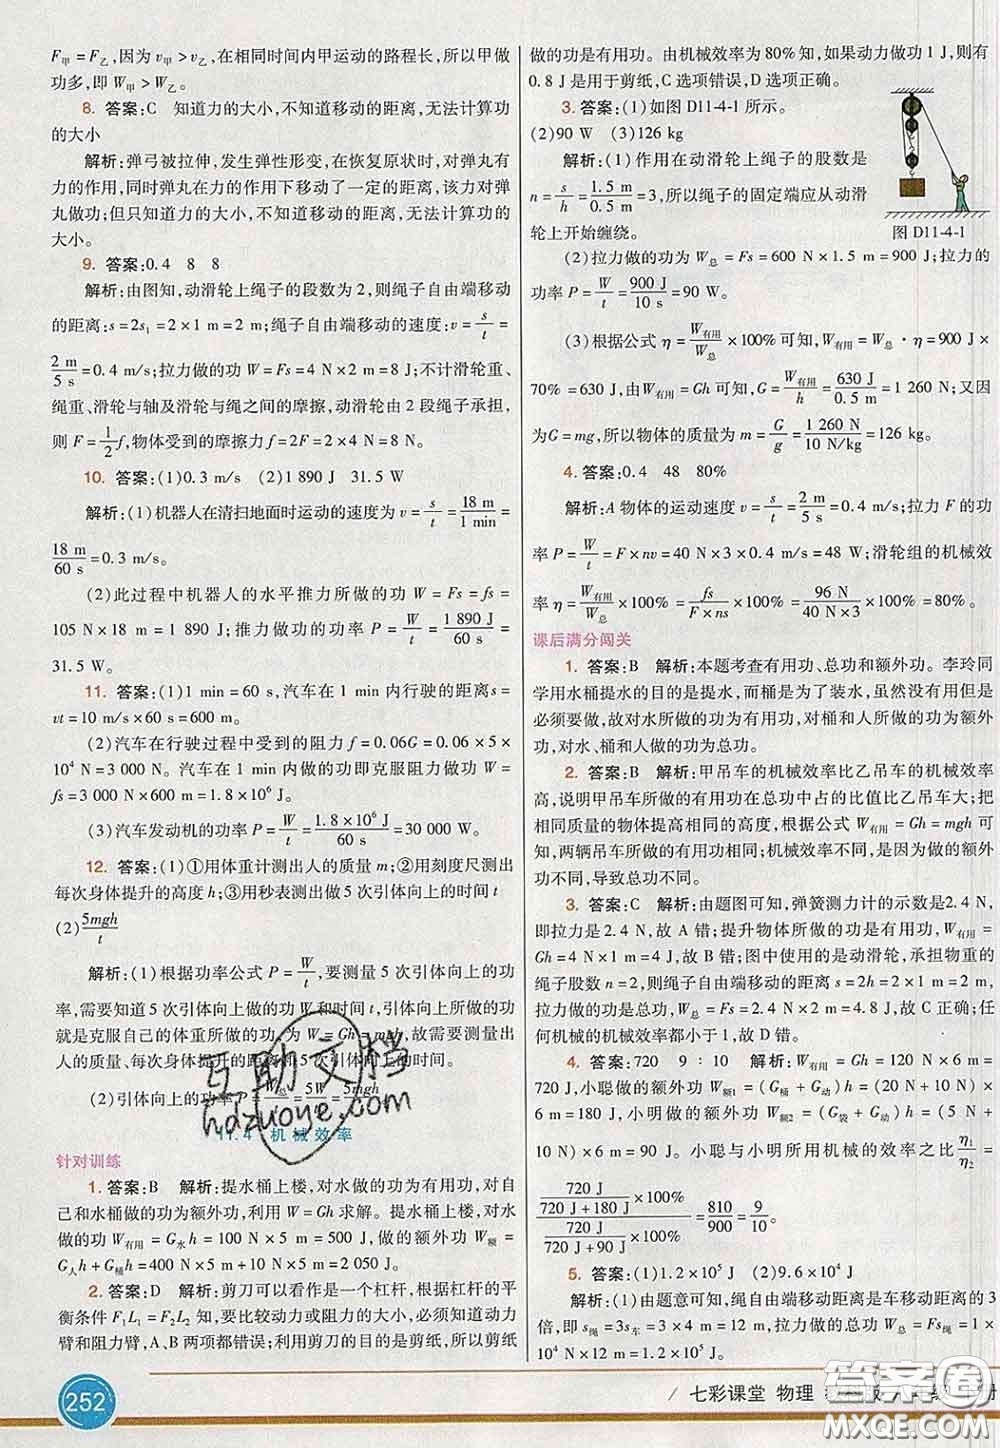 F甲=F乙,因为 v甲>v乙,在相同时间内甲运动的路程长,所以甲做
功多,即 W甲>W乙。
8. 答案:C 知道力的大小,不知道移动的距离,无法计算功
的大小
解析:弹弓被拉伸,发生弹性形变,在恢复原状时,对弹丸有
力的作用,同时弹丸在力的作用下移动了一定的距离,该力对弹
丸做功;但只知道力的大小,不知道移动的距离,无法计算功的
大小。
9. 答案:0.4 8 8
解析:由图知,动滑轮上绳子的段数为2,则绳子自由端移动
的距离:s=2s₁=2×1 m=2 m;绳子自由端移动的速度:v=s/t=
2 m/5 s=0.4 m/s;拉力做的功 W=Fs=4 N×2 m=8 J;不计滑轮重、
绳重、滑轮与轴及滑轮与绳之间的摩擦,动滑轮由2段绳子承担,
则 F=1/2f,物体受到的摩擦力 f=2F=2×4 N=8 N。
10. 答案:(1)0.3 m/s (2)1 890 J 31.5 W
解析:(1)机器人在清扫地面时运动的速度为 v=s/t=18 m/1 min=
18 m/60 s=0.3 m/s。
(2)此过程中机器人的水平推力所做的功 W=Fs=fs=
105 N×18 m=1 890 J;推力做功的功率 P=W/t=1 890 J/60 s=
31.5 W。
11. 答案:(1)1 min=60 s,汽车在1 min内行驶的距离 s=
vt=10 m/s×60 s=600 m。
(2)汽车在行驶过程中受到的阻力 f=0.06G=0.06×5×
10⁴ N=3 000 N。汽车在1 min内做的功即克服阻力做功 W=
fs=3 000 N×600 m=1.8×10⁶ J。
(3)汽车发动机的功率 P=W/t=1.8×10⁶ J/60 s=30 000 W。
12. 答案:(1)①用体重计测出人的质量 m;②用刻度尺测出
每次身体提升的高度 h;③用秒表测出做5次引体向上的时间 t
(2)5mgh/t
解析:(1)根据功率公式 P=W/t,要测量5次引体向上的功
率,需要知道5次引体向上做的功 W和时间 t,引体向上所做的功
就是克服自己的体重所做的功,为 W=Gh=mgh,故需要测量出
人的质量、每次身体提升的距离和5次引体向上的时间。
(2)引体向上的功率 P=W总/t=5W/t=5mgh/t
11.4 机械效率
针对训练
1. 答案:B 解析:提水桶上楼,对水做的功为有用功,对自
己和水桶做的功为额外功,利用 W=Gh 求解。提水桶上楼,对水
做的功 W有用=G水h=100 N×5 m=500 J,做的额外功 W额=
G人h+G桶h=400 N×5 m+10 N×5 m=2 050 J。
2. 答案:D 解析:剪刀可以看作是一个杠杆,根据杠杆的平
衡条件 F₁L₁=F₂L₂ 知,要比较动力或阻力的大小,必须知道动力
臂和阻力臂,A、B两项都错误;利用剪刀的目的是剪纸,所以剪纸
252
做的功是有用功。由机械效率为80%知,如果动力做功1 J,则有
0.8 J是用于剪纸,C选项错误,D选项正确。
3. 答案:(1)如图 D11-4-1 所示。
(2)90 W (3)126 kg
解析:(1)作用在动滑轮上绳子的股数是
n=s/h=1.5 m/0.5 m=3,所以绳子的固定端应从动滑
轮上开始缠绕。
图 D11-4-1
(2)拉力做的功为 W总=Fs=600 N×1.5 m=900 J;拉力的
功率 P=W/t=900 J/10 s=90 W。
(3)根据公式 η=W有用/W总×100%可知,W有用=W总·η=900 J×
70%=630 J,由 W有用=Gh 可知,G=W有用/h=630 J/0.5 m=1 260 N;又因
为 G=mg,所以物体的质量为 m=G/g=1 260 N/10 N/kg=126 kg。
4. 答案:0.4 48 80%
解析:A物体的运动速度 v=s/t=2 m/5 s=0.4 m/s;拉力 F 的功
率 P=W/t=F×nv=40 N×3×0.4 m/s=48 W;滑轮组的机械效
率 η=W有用/W总×100%=fs/F×ns×100%=96 N/40 N×3×100%=80%。
课后满分闯关
1. 答案:B 解析:本题考查有用功、总功和额外功。李玲同
学用水桶提水的目的是提水,而桶是为了装水,虽然没有用但是
必须要做,故对水所做的功为有用功,对桶和人所做的功为额外
功,对水、桶和人做的功为总功。
2. 答案:B 解析:甲吊车的机械效率比乙吊车的机械效率
高,说明甲吊车所做的有用功在总功中占的比值比乙吊车大;把
相同质量的物体提高相同的高度,根据公式 W有用=Gh=mgh 可
知,两辆吊车所做的有用功相同;机械效率不同,是因为做的额外
功不同,导致总功不同。
3. 答案:C 解析:由题图可知,弹簧测力计的示数是2.4 N,
即拉力是2.4 N,故 A 错;提升物体所做的功是有用功,W有用=
Gh=4 N×1 m=4 J,故 B 错误;图中使用的是动滑轮,承担物重的
绳子股数 n=2,故绳子自由端移动的距离 s=2h=2×1 m=2 m,
拉力做的功是总功,W总=Fs=2.4 N×2 m=4.8 J,故 C 正确;任
何机械的机械效率都小于1,故 D 错。
4. 答案:720 9∶10 解析:W有用=Gh=120 N×6 m=
720 J,小聪做的额外功 W额1=(G桶+G动)h=(20 N+10 N)×
6 m=180 J,小明做的额外功 W额2=(G袋+G动)h=(5 N+
10 N)×6 m=90 J。小聪与小明所用机械的效率之比 η₁/η₂=
(720 J/(720 J+180 J)×100%)/(720 J/(720 J+90 J)×100%)=810/900=9/10。
5. 答案:(1)1.2×10⁵ J (2)9.6×10⁴ J
解析:(1)由题意可知,绳自由端移动距离是车移动距离的3
倍,即 s绳=3s车=3×4 m=12 m,拉力所做的总功 W总=Fs绳=1×
10⁴ N×12 m=1.2×10⁵ J。
七彩课堂 物理
互助文档
hdzuoye.com
答案圈
MXQE.COM